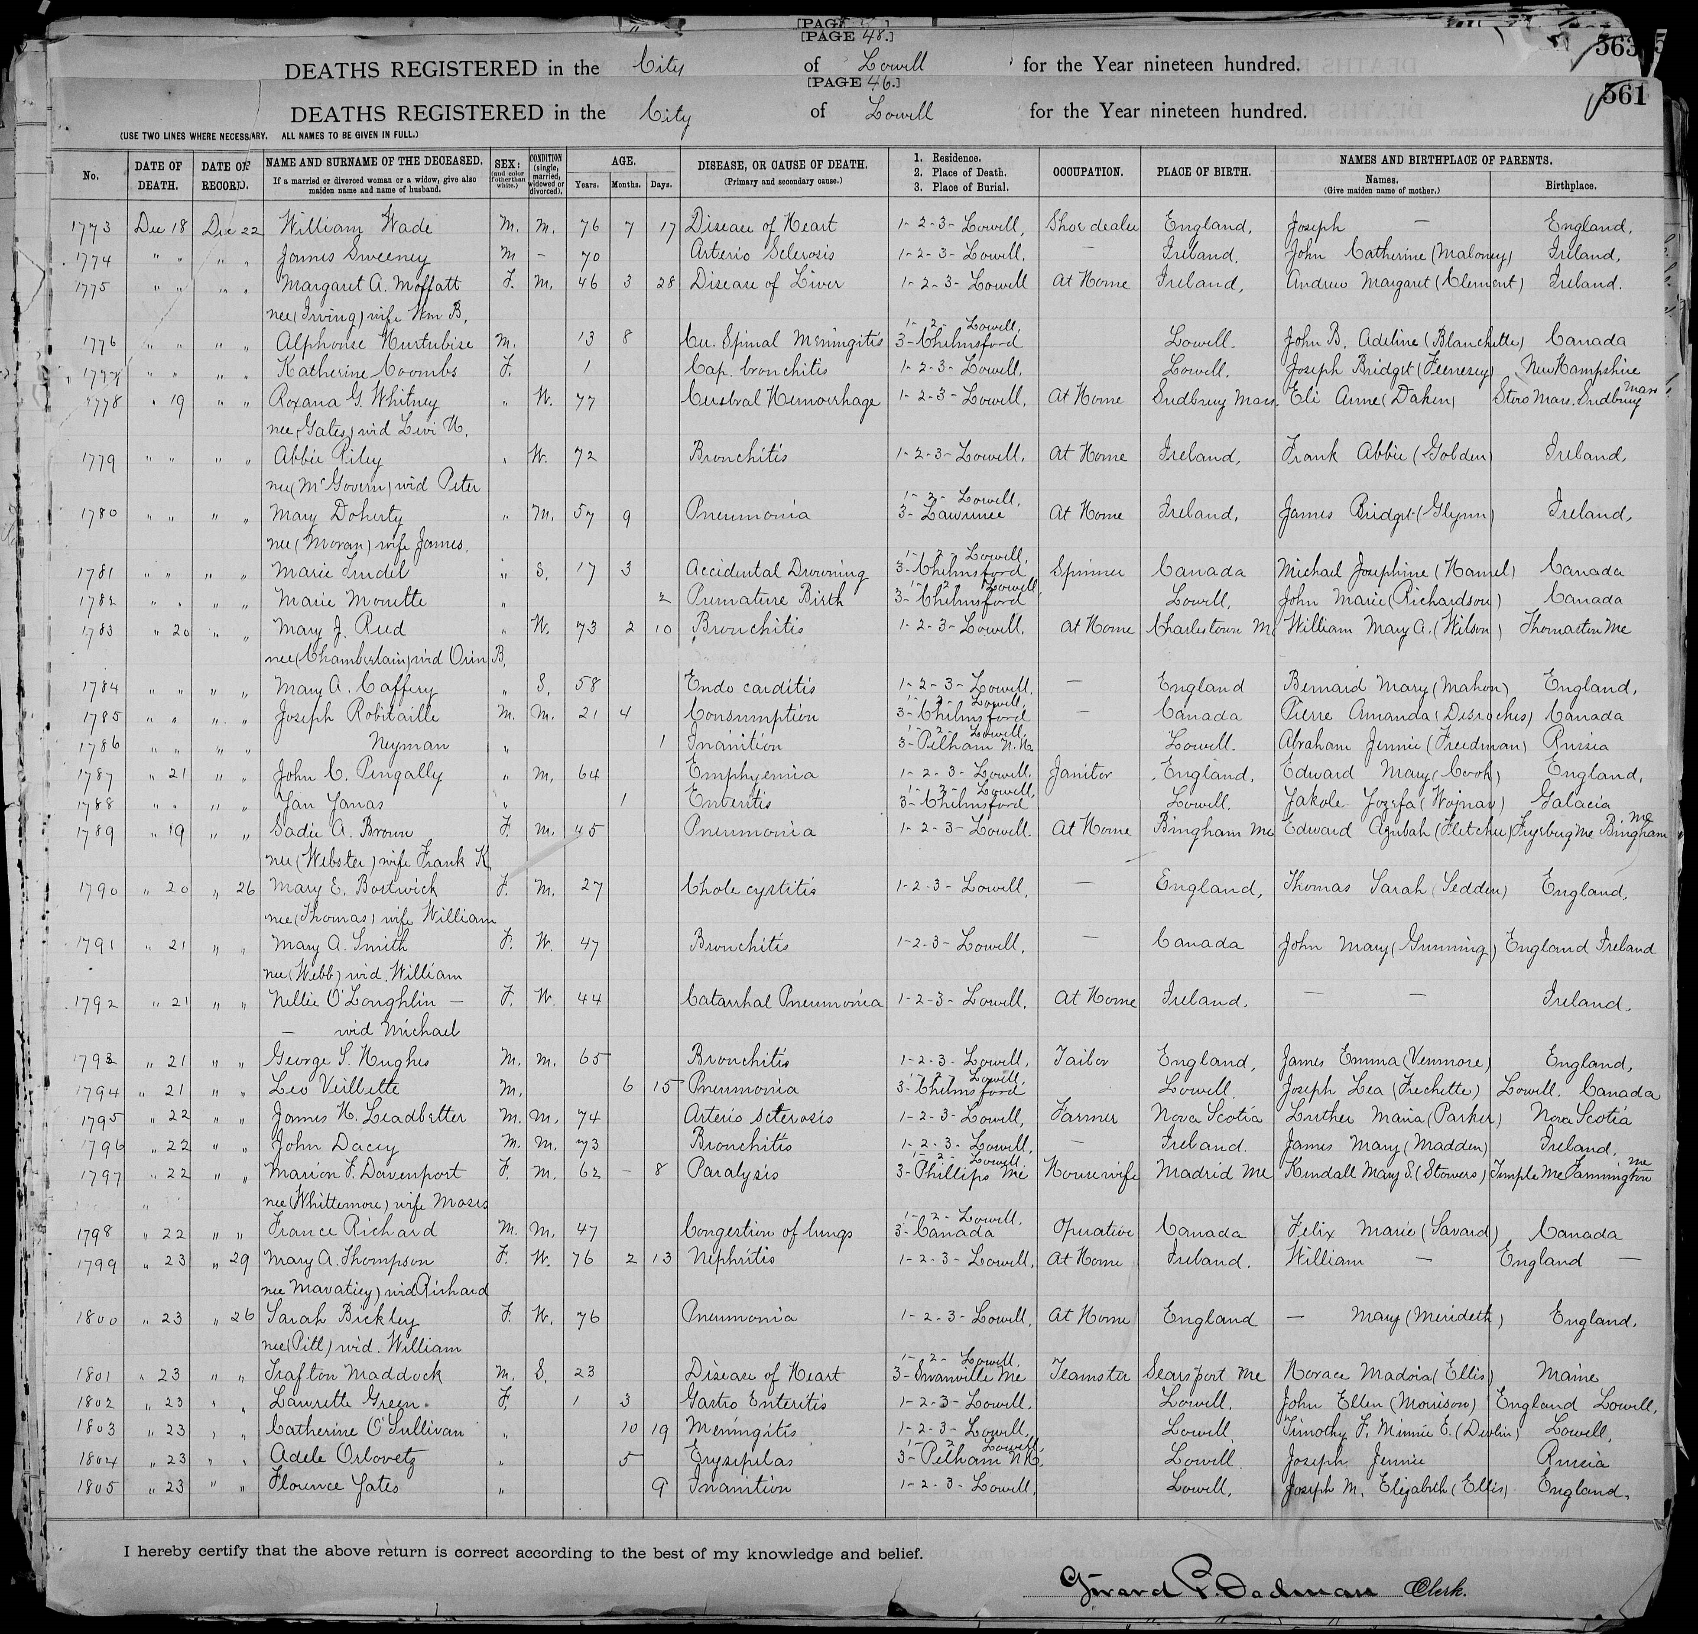 [PAGE 48.]
563
DEATHS REGISTERED in the City of Lowell for the Year nineteen hundred.
[PAGE 46.]
561
DEATHS REGISTERED in the City of Lowell for the Year nineteen hundred.
(USE TWO LINES WHERE NECESSARY. ALL NAMES TO BE GIVEN IN FULL.)
No. DATE OF DEATH. DATE OF RECORD. NAME AND SURNAME OF THE DECEASED. If a married or divorced woman or a widow, give also maiden name and name of husband. SEX: (and color if other than white.) CONDITION (single, married, widowed or divorced). AGE. Years. Months. Days. DISEASE, OR CAUSE OF DEATH. (Primary and secondary cause.) 1. Residence. 2. Place of Death. 3. Place of Burial. OCCUPATION. PLACE OF BIRTH. NAMES AND BIRTHPLACE OF PARENTS. Names. (Give maiden name of mother.) Birthplace.
1773 Dec 18 Dec 22 William Wade M. M. 76 7 17 Disease of Heart 1-2-3-Lowell, Shoe dealer England, Joseph — England,
1774 " " " " James Sweeney M — 70 Arterio Sclerosis 1-2-3-Lowell. — Ireland. John Catherine (Maloney) Ireland,
1775 " " " " Margaret A. Moffatt F. M. 46 3 28 Disease of Liver 1-2-3-Lowell At Home Ireland, Andrew Margaret (Clement) Ireland.
nee (Irving) wife Wm B.
1776 " " " " Alphonse Hurtubise M. 13 8 Cer. Spinal Meningitis 1-2-Lowell, 3-Chelmsford Lowell. John B. Adeline (Blanchette) Canada
1777 " " " " Katherine Coombs F. 1 Cap. bronchitis 1-2-3-Lowell. Lowell. Joseph Bridget (Feenesey) New Hampshire
1778 " 19 " " Roxana G. Whitney " W. 77 Cerebral Hemorrhage 1-2-3-Lowell, At Home Sudbury Mass. Eli Anne (Daken) Stow Mass. Sudbury Mass
nee (Gates) wid Levi H.
1779 " " " " Abbie Riley " W. 72 Bronchitis 1-2-3-Lowell, At Home Ireland, Frank Abbie (Golden) Ireland,
nee (McGovern) wid Peter
1780 " " " " Mary Doherty " M. 57 9 Pneumonia 1-2-Lowell, 3-Lawrence At Home Ireland, James Bridget (Glynn) Ireland,
nee (Moran) wife James.
1781 " " " " Marie Trudel " S. 17 3 Accidental Drowning 1-2-Lowell 3-Chelmsford Spinner Canada Michael Josephine (Hamel) Canada
1782 " " " " Marie Monette " 2 Premature Birth 1-2-Lowell, 3-Chelmsford Lowell, John Marie (Richardson) Canada
1783 " 20 " " Mary J. Reed " W. 73 2 10 Bronchitis 1-2-3-Lowell. At Home Charlestown Ms William Mary A. (Wilson) Thomaston Me
nee (Chamberlain) wid Orin B.
1784 " " " " Mary A. Caffery " S. 58 Endo carditis 1-2-3-Lowell. — England Bernard Mary (Mahon) England,
1785 " " " " Joseph Robitaille M. M. 21 4 Consumption 1-2-Lowell, 3-Chelmsford — Canada Pierre Amanda (Desroches) Canada
1786 " " " " Neyman " 1 Inanition 1-2-Lowell. 3-Pelham N.H. Lowell. Abraham Jennie (Freedman) Russia
1787 " 21 " " John C. Pingally " M. 64 Emphyemia 1-2-3-Lowell. Janitor England. Edward Mary (Cook) England,
1788 " " " " Jan Janas " 1 Enteritis 1-2-Lowell, 3-Chelmsford Lowell. Jakole Jozefa (Wojnar) Galacia
1789 " 19 " " Sadie A. Brown F. M. 45 Pneumonia 1-2-3-Lowell. At Home Bingham Me Edward Azubah (Fletcher) Fryeburg Me Bingham Me
nee (Webster) wife Frank K.
1790 " 20 " 26 Mary E. Bostwick F. M. 27 Chole cystitis 1-2-3-Lowell, — England, Thomas Sarah (Sedden) England,
nee (Thomas) wife William
1791 " 21 " " Mary A. Smith F. W. 47 Bronchitis 1-2-3-Lowell, — Canada John Mary (Gunning) England Ireland
nee (Webb) wid. William
1792 " 21 " " Nellie O'Loughlin — F. W. 44 Catarrhal Pneumonia 1-2-3-Lowell, At Home Ireland, — — Ireland.
— wid Michael
1793 " 21 " " George S. Hughes M. M. 65 Bronchitis 1-2-3-Lowell, Tailor England, James Emma (Venmore) England,
1794 " 21 " " Leo Veillette M. 6 15 Pneumonia 1-2-Lowell, 3-Chelmsford Lowell. Joseph Lea (Frechette) Lowell. Canada
1795 " 22 " " James H. Leadbetter M. M. 74 Arterio sclerosis 1-2-3-Lowell, Farmer Nova Scotia Luther Maria (Parker) Nova Scotia
1796 " 22 " " John Dacey M. M. 73 Bronchitis 1-2-3-Lowell, — Ireland. James Mary (Madden) Ireland,
1797 " 22 " " Marion F. Davenport F. M. 62 — 8 Paralysis 1-2-Lowell 3-Phillips Me Housewife Madrid Me Kendall Mary S. (Stowers) Temple Me Farmington Me
nee (Whittemore) wife Moses
1798 " 22 " " France Richard M. M. 47 Congestion of lungs 1-2-Lowell, 3-Canada Operative Canada Felix Marie (Savard) Canada
1799 " 23 " 29 Mary A. Thompson F. W. 76 2 13 Nephritis 1-2-3-Lowell, At Home Ireland. William — England —
nee wid Richard
1800 " 23 " 26 Sarah Bickley F. W. 76 Pneumonia 1-2-3-Lowell, At Home England — Mary (Merideth) England,
nee (Pitt) wid. William
1801 " 23 " " Trafton Maddock M. S. 23 Disease of Heart 1-2-Lowell, 3-Swanville Me Teamster Searsport Me Horace Madora (Ellis) Maine
1802 " 23 " " Lawrette Green F. 1 3 Gastro Enteritis 1-2-3-Lowell. Lowell. John Ellen (Morrison) England Lowell,
1803 " 23 " " Catherine O'Sullivan " 10 19 Meningitis 1-2-3-Lowell, Lowell Timothy F. Minnie E. (Devlin) Lowell,
1804 " 23 " " Adele Orlovetz " 5 Erysipelas 1-2-Lowell, 3-Pelham N.H. Lowell Joseph Jennie Russia
1805 " 23 " " Florence Yates " 9 Inanition 1-2-3-Lowell, Lowell, Joseph M. Elizabeth (Ellis) England,
I hereby certify that the above return is correct according to the best of my knowledge and belief.
Girard P. Dadman Clerk.